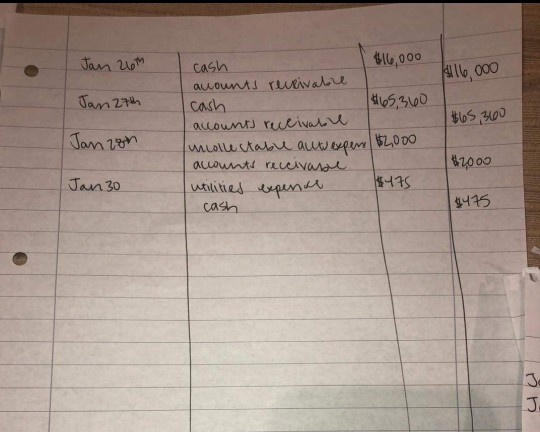 Jan 26th cash $16,000
accounts receivable $16,000
Jan 27th cash $65,360
accounts receivable $65,360
Jan 28th uncollectable acct expen $2,000
accounts receivable $2,000
Jan 30 utilities expense $475
cash $475